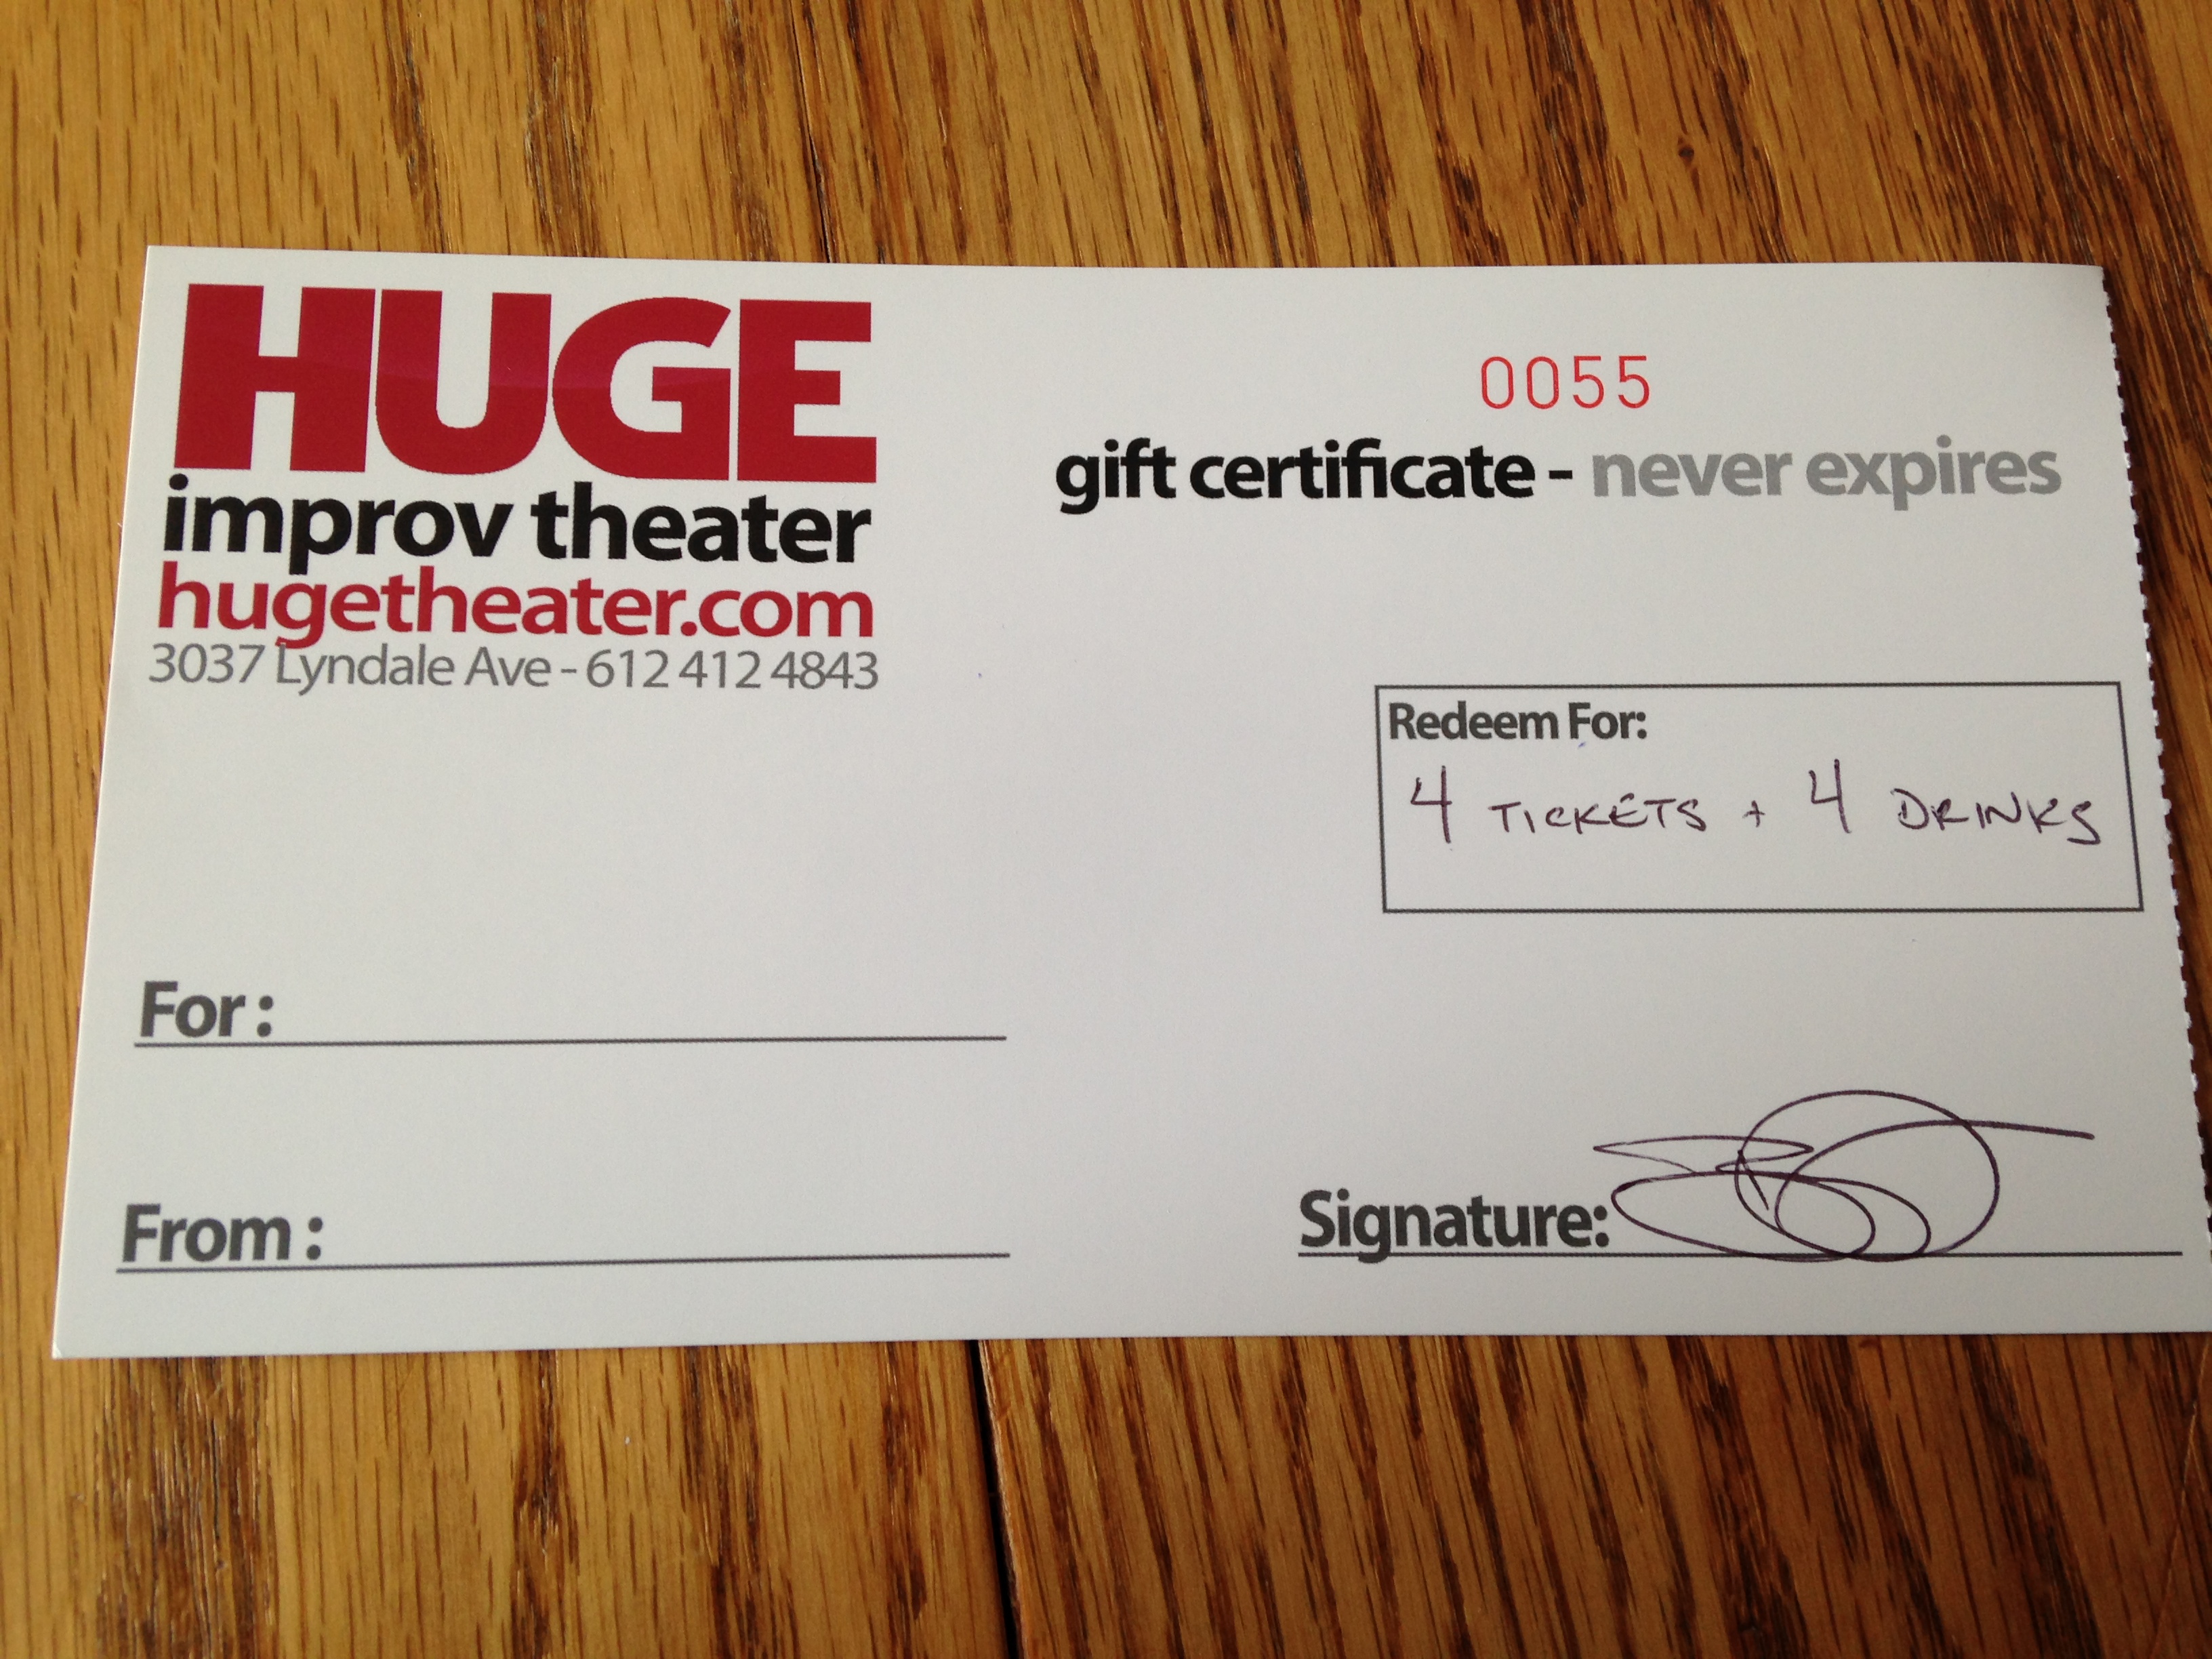 HUGE
improv theater
hugetheater.com
3037 Lyndale Ave - 612 412 4843
0055
gift certificate - never expires
Redeem For:
4 TICKETS + 4 DRINKS
For:
From:
Signature: